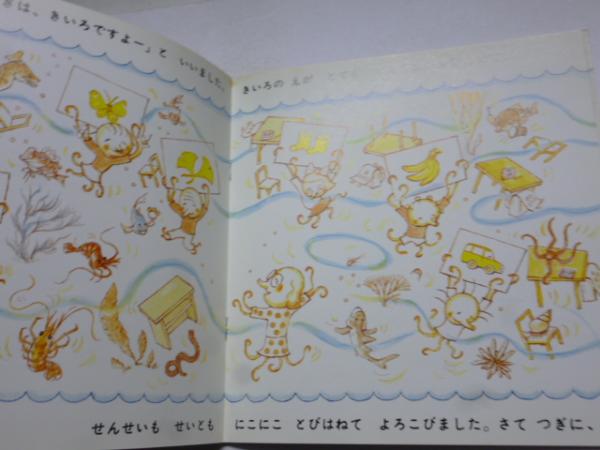 は、きいろですよー」と いいました。
きいろの えが
せんせいも せいとも にこにこ とびはねて よろこびました。さて つぎに、